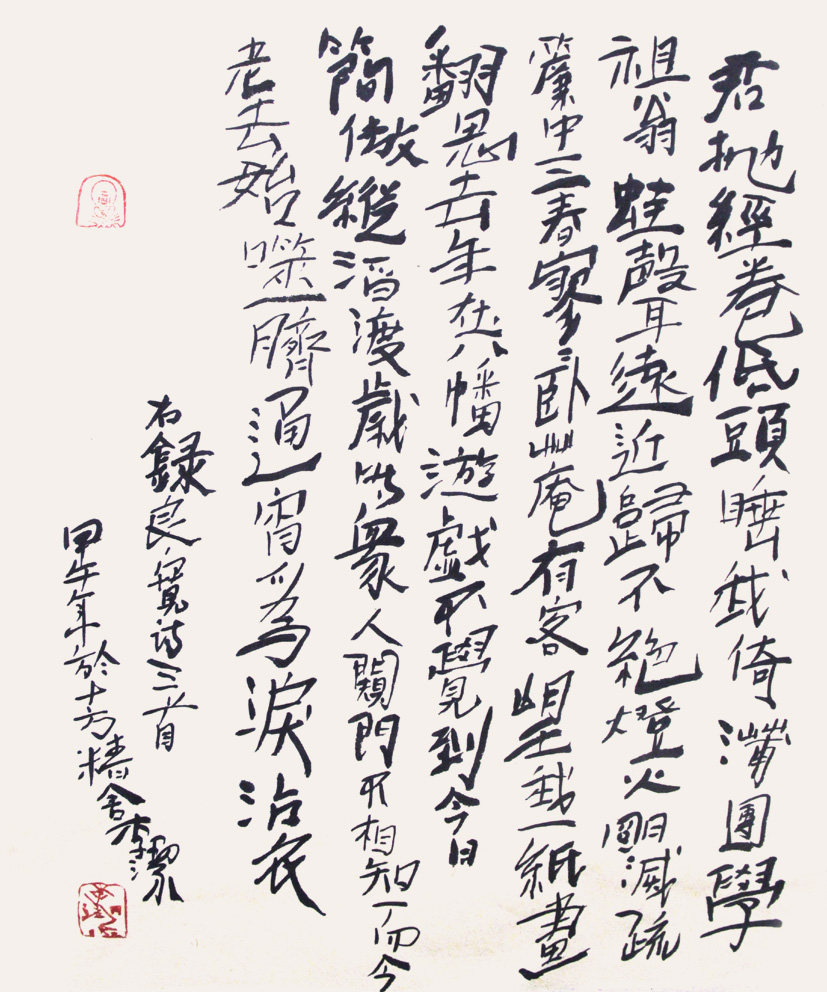 君抛經卷低頭睡我倚蒲團學
祖翁蛙聲耳遠近歸不絕燈火明滅疏
簾中三春寥〻臥艸庵有客望我一紙畫
翻思去年在八幡遊戲不覺到今日
簡傲縱滔渡歲時衆人門不相知而今
老去始噬臍通宵為淚沾衣
右錄良寬詩三首
甲午年於十方精舍李潔